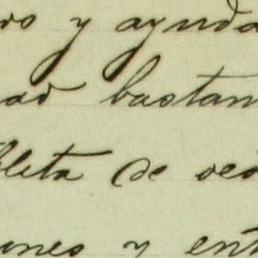 vo y ayuda
ad bastan
leta de
ones y ent